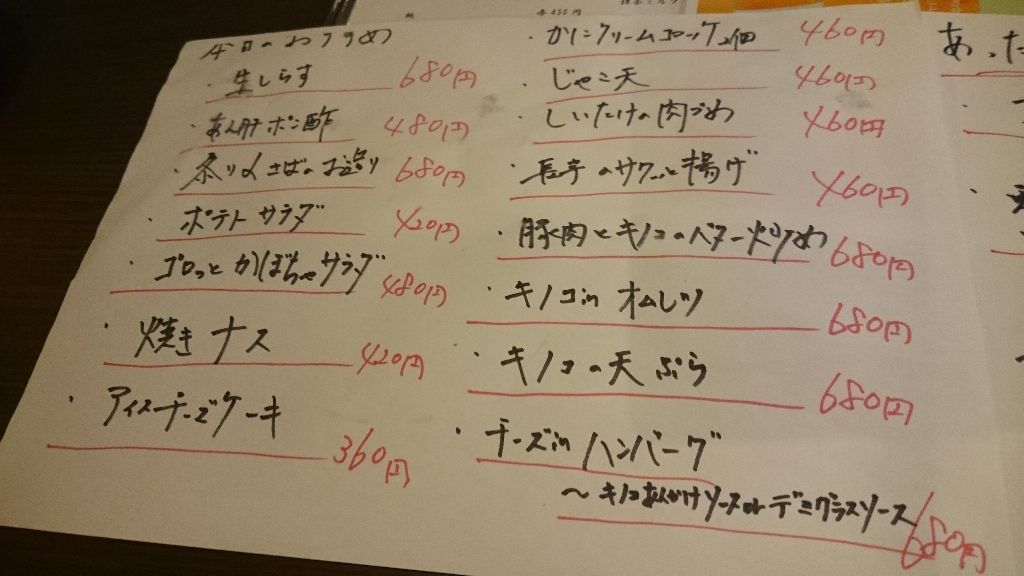 本日のおすすめ
・生しらす 680円
・あん肝ポン酢 480円
・炙り〆さばのお造り 680円
・ポテトサラダ 420円
・ゴロっとかぼちゃサラダ 480円
・焼きナス 420円
・アイスチーズケーキ 360円
・かにクリームコロッケ2個 460円
・じゃこ天 460円
・しいたけの肉づめ 460円
・長芋のサクっと揚げ 460円
・豚肉とキノコのバター炒め 680円
・キノコinオムレツ 680円
・キノコの天ぷら 680円
・チーズinハンバーグ
〜キノコあんかけソースorデミグラスソース 680円
あった